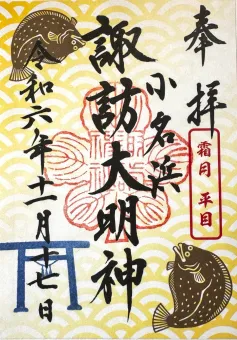 奉拝
霜月 平目
小名浜
諏訪大明神
令和六年十一月十七日